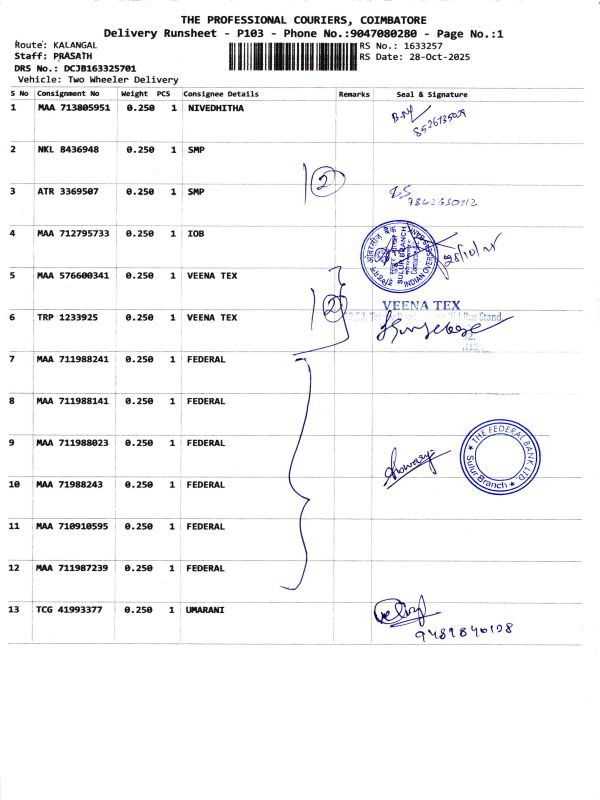 THE PROFESSIONAL COURIERS, COIMBATORE
Delivery Runsheet - P103 - Phone No.:9047080280 - Page No.:1
Route: KALANGAL
RS No.: 1633257
Staff: PRASATH
RS Date: 28-Oct-2025
DRS No.: DCJB163325701
Vehicle: Two Wheeler Delivery
S No Consignment No Weight PCS Consignee Details Remarks Seal & Signature
1 MAA 713805951 0.250 1 NIVEDHITHA
2 NKL 8436948 0.250 1 SMP
2
3 ATR 3369507 0.250 1 SMP
4 MAA 712795733 0.250 1 IOB
SULUR BRANCH
INDIAN OVERSEAS BANK
5 MAA 576600341 0.250 1 VEENA TEX
2
VEENA TEX
6 TRP 1233925 0.250 1 VEENA TEX
7 MAA 711988241 0.250 1 FEDERAL
8 MAA 711988141 0.250 1 FEDERAL
9 MAA 711988023 0.250 1 FEDERAL
THE FEDERAL BANK LTD
Sulur Branch
10 MAA 71988243 0.250 1 FEDERAL
11 MAA 710910595 0.250 1 FEDERAL
12 MAA 711987239 0.250 1 FEDERAL
13 TCG 41993377 0.250 1 UMARANI